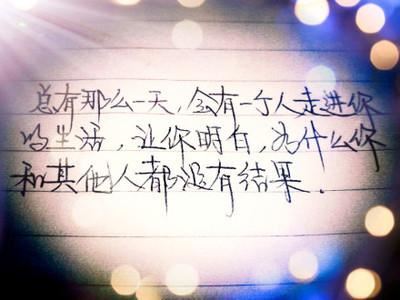 总有那么一天,会有一个人走进你
的生活,让你明白,为什么你
和其他人都没有结果.